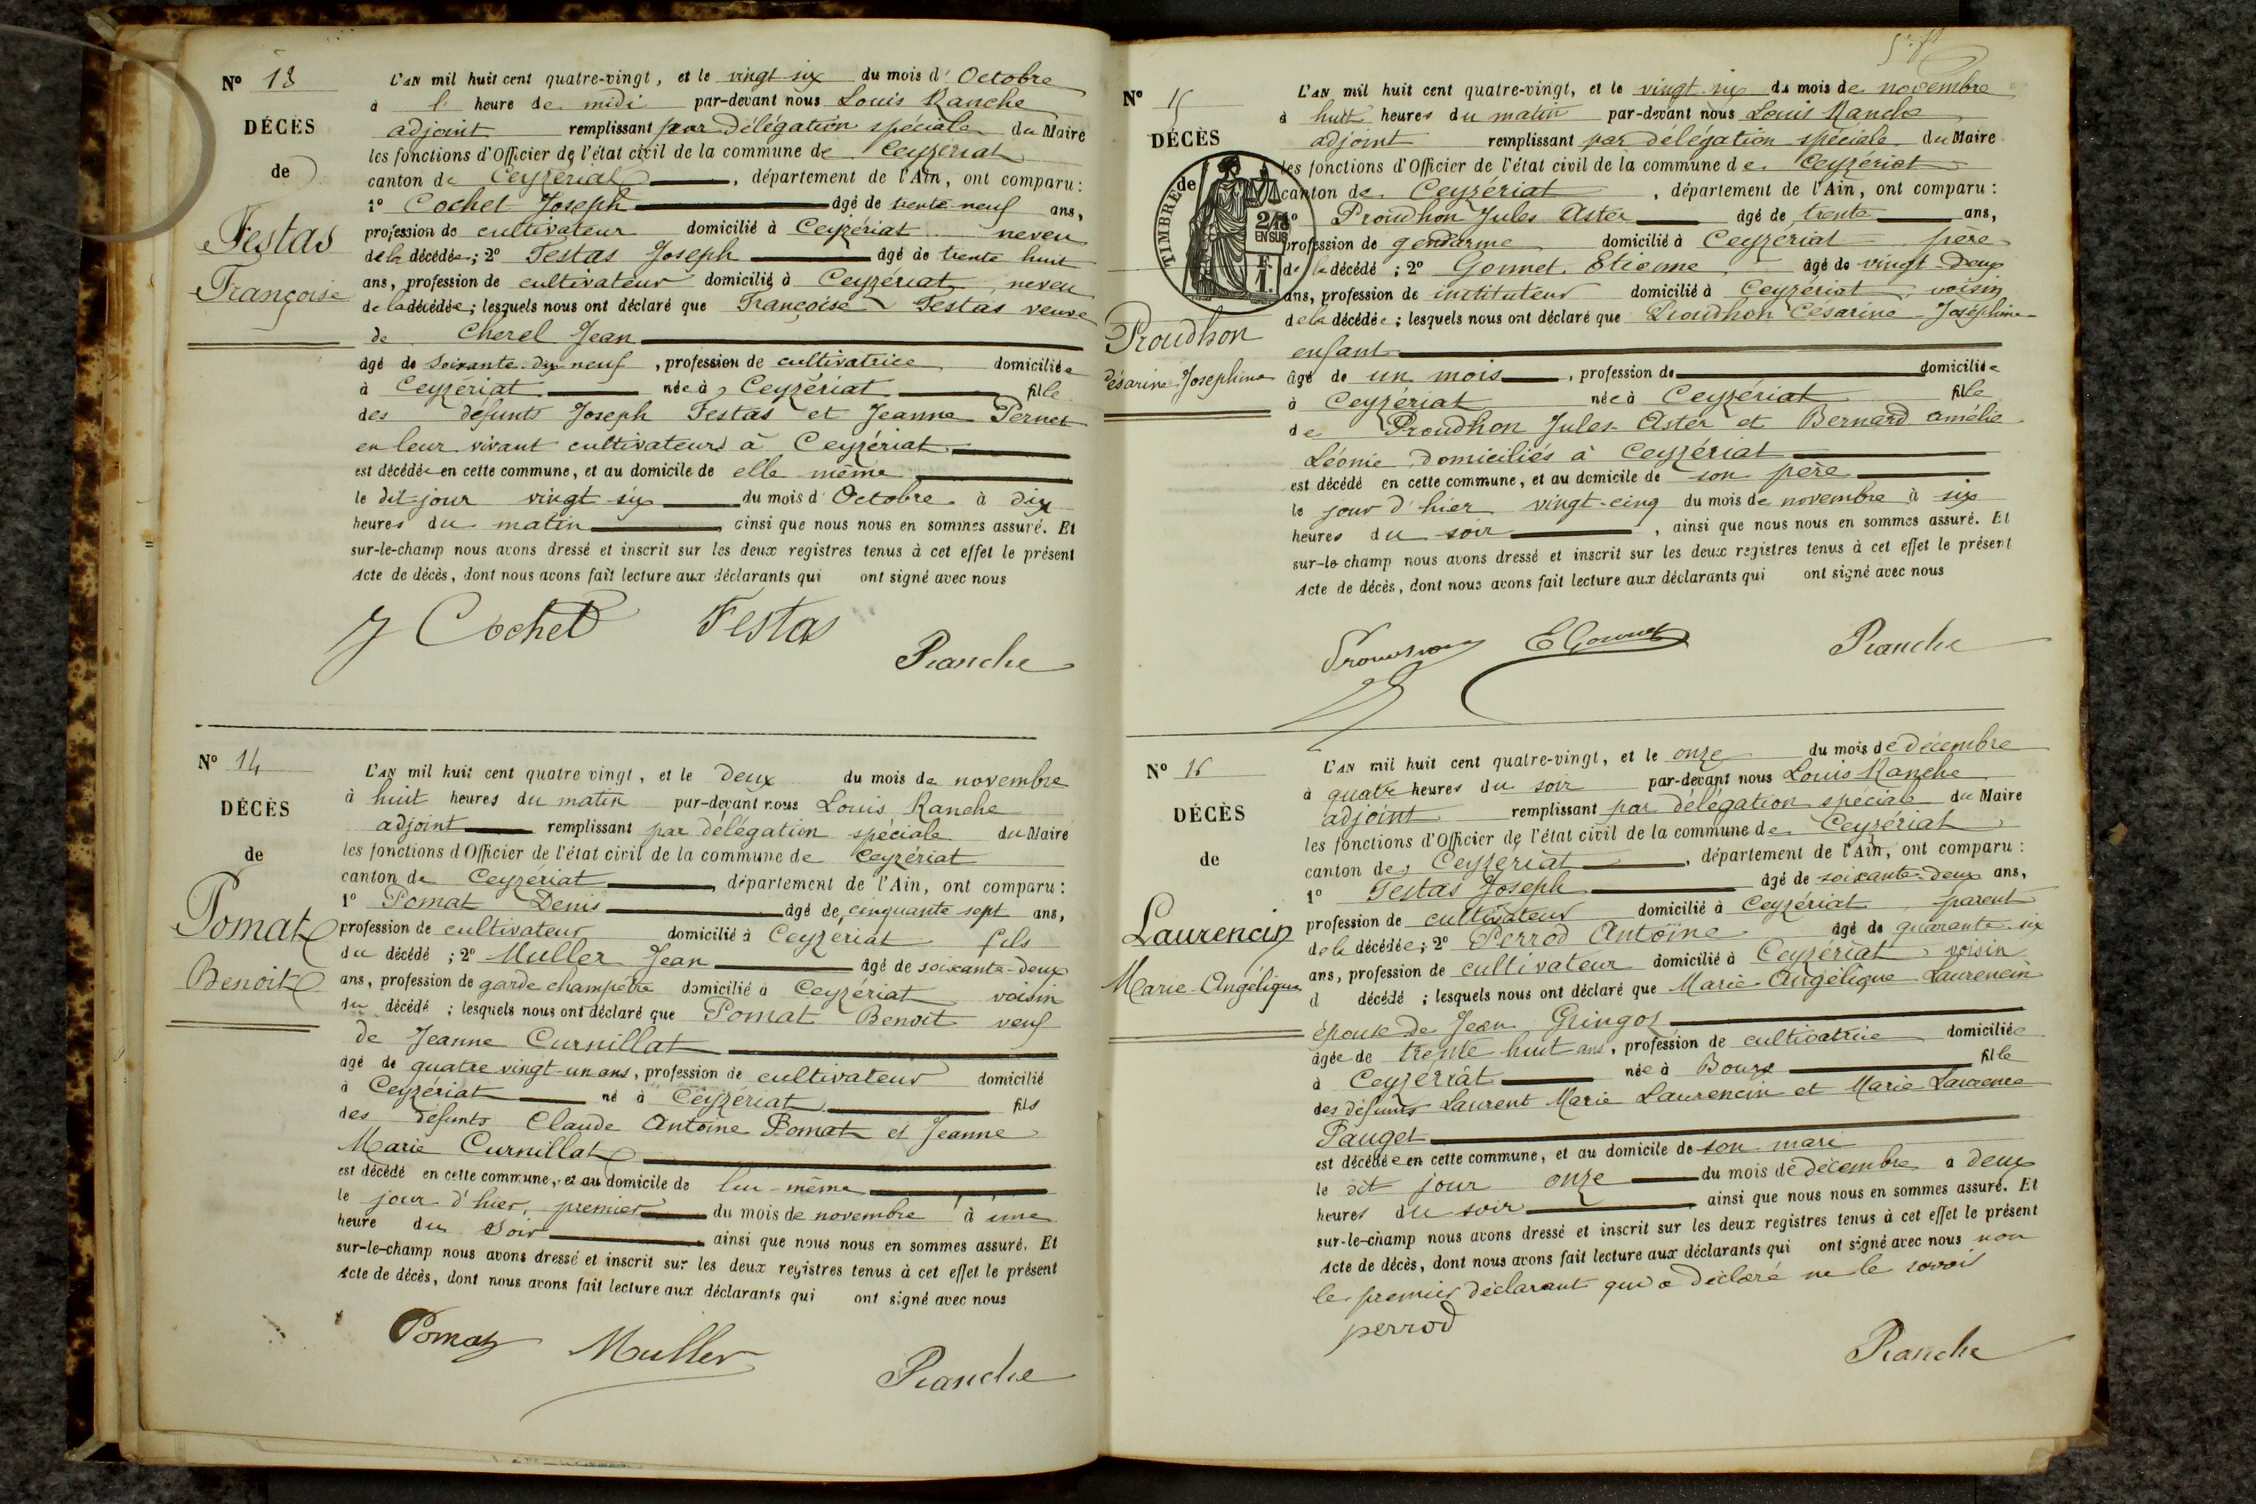 Nº 13
DÉCÈS
de
Festas
Françoise
L'AN mil huit cent quatre-vingt, et le vingt six du mois d'Octobre
à l' heure de midi par-devant nous Louis Ranche
adjoint remplissant par délégation spéciale du Maire
les fonctions d'Officier de l'état civil de la commune de Ceyzériat
canton de Ceyzériat, département de l'Ain, ont comparu:
1º Cochet Joseph âgé de trente neuf ans,
profession de cultivateur domicilié à Ceyzériat neveu
de la décédée; 2º Festas Joseph âgé de trente huit
ans, profession de cultivateur domicilié à Ceyzériat, neveu
de la décédée; lesquels nous ont déclaré que Françoise Festas veuve
de Cherel Jean
âgé de soixante-dix neuf, profession de cultivatrice domiciliée
à Ceyzériat née à Ceyzériat fille
des défunts Joseph Festas et Jeanne Pernet
en leur vivant cultivateurs à Ceyzériat
est décédée en cette commune, et au domicile de elle même
le dit jour vingt six du mois d'Octobre à dix
heures du matin ainsi que nous nous en sommes assuré. Et
sur-le-champ nous avons dressé et inscrit sur les deux registres tenus à cet effet le présent
Acte de décès, dont nous avons fait lecture aux déclarants qui ont signé avec nous
J Cochet Festas
Ranche
Nº 14
DÉCÈS
de
Pomat
Benoit
L'AN mil huit cent quatre vingt, et le deux du mois de novembre
à huit heures du matin par-devant nous Louis Ranche
adjoint remplissant par délégation spéciale du Maire
les fonctions d'Officier de l'état civil de la commune de Ceyzériat
canton de Ceyzériat, département de l'Ain, ont comparu:
1º Pomat Denis âgé de cinquante sept ans,
profession de cultivateur domicilié à Ceyzériat fils
du décédé; 2º Muller Jean âgé de soixante-deux
ans, profession de garde champêtre domicilié à Ceyzériat voisin
du décédé; lesquels nous ont déclaré que Pomat Benoit veuf
de Jeanne Curnillat
âgé de quatre vingt-un ans, profession de cultivateur domicilié
à Ceyzériat né à Ceyzériat fils
des défunts Claude Antoine Pomat et Jeanne
Marie Curnillat
est décédé en cette commune, et au domicile de lui-même
le jour d'hier, premier du mois de novembre à une
heure du soir ainsi que nous nous en sommes assuré. Et
sur-le-champ nous avons dressé et inscrit sur les deux registres tenus à cet effet le présent
Acte de décès, dont nous avons fait lecture aux déclarants qui ont signé avec nous
Pomat Muller
Ranche
Nº 15
DÉCÈS
de
TIMBRE
2/10
EN SUS
Proudhon
Césarine Joséphine
L'AN mil huit cent quatre-vingt, et le vingt-six du mois de novembre
à huit heures du matin par-devant nous Louis Ranche
adjoint remplissant par délégation spéciale du Maire
les fonctions d'Officier de l'état civil de la commune de Ceyzériat
canton de Ceyzériat, département de l'Ain, ont comparu:
1º Proudhon Jules Aster âgé de trente ans,
profession de gendarme domicilié à Ceyzériat père
de la décédé; 2º Gonnet Etienne âgé de vingt-deux
ans, profession de instituteur domicilié à Ceyzériat, voisin
de la décédée; lesquels nous ont déclaré que Proudhon Césarine Joséphine
enfant
âgé de un mois, profession de domiciliée
à Ceyzériat née à Ceyzériat fille
de Proudhon Jules-Aster et Bernard Amélie
Léonie domiciliés à Ceyzériat
est décédé en cette commune, et au domicile de son père
le jour d'hier vingt-cinq du mois de novembre à six
heures du soir, ainsi que nous nous en sommes assuré. Et
sur-le-champ nous avons dressé et inscrit sur les deux registres tenus à cet effet le présent
Acte de décès, dont nous avons fait lecture aux déclarants qui ont signé avec nous
Proudhon E Gonnet Ranche
Nº 16
DÉCÈS
de
Laurencin
Marie-Angélique
L'AN mil huit cent quatre-vingt, et le onze du mois de décembre
à quatre heures du soir par-devant nous Louis Ranche
adjoint remplissant par délégation spéciale du Maire
les fonctions d'Officier de l'état civil de la commune de Ceyzériat
canton de Ceyzériat, département de l'Ain, ont comparu:
1º Festas Joseph âgé de soixante-deux ans,
profession de cultivateur domicilié à Ceyzériat, parent
de la décédée; 2º Perrod Antoine âgé de quarante-six
ans, profession de cultivateur domicilié à Ceyzériat, voisin
d décédé; lesquels nous ont déclaré que Marie-Angélique Laurencin
épouse de Jean Gringoz
âgée de trente huit ans, profession de cultivatrice domiciliée
à Ceyzériat née à Bourg fille
des défunts Laurent Marie Laurencin et Marie Laurence
Pauget
est décédée en cette commune, et au domicile de son mari
le dit jour onze du mois de décembre à deux
heures du soir ainsi que nous nous en sommes assuré. Et
sur-le-champ nous avons dressé et inscrit sur les deux registres tenus à cet effet le présent
Acte de décès, dont nous avons fait lecture aux déclarants qui ont signé avec nous non
le premier déclarant qui a déclaré ne le savoir
perrod
Ranche